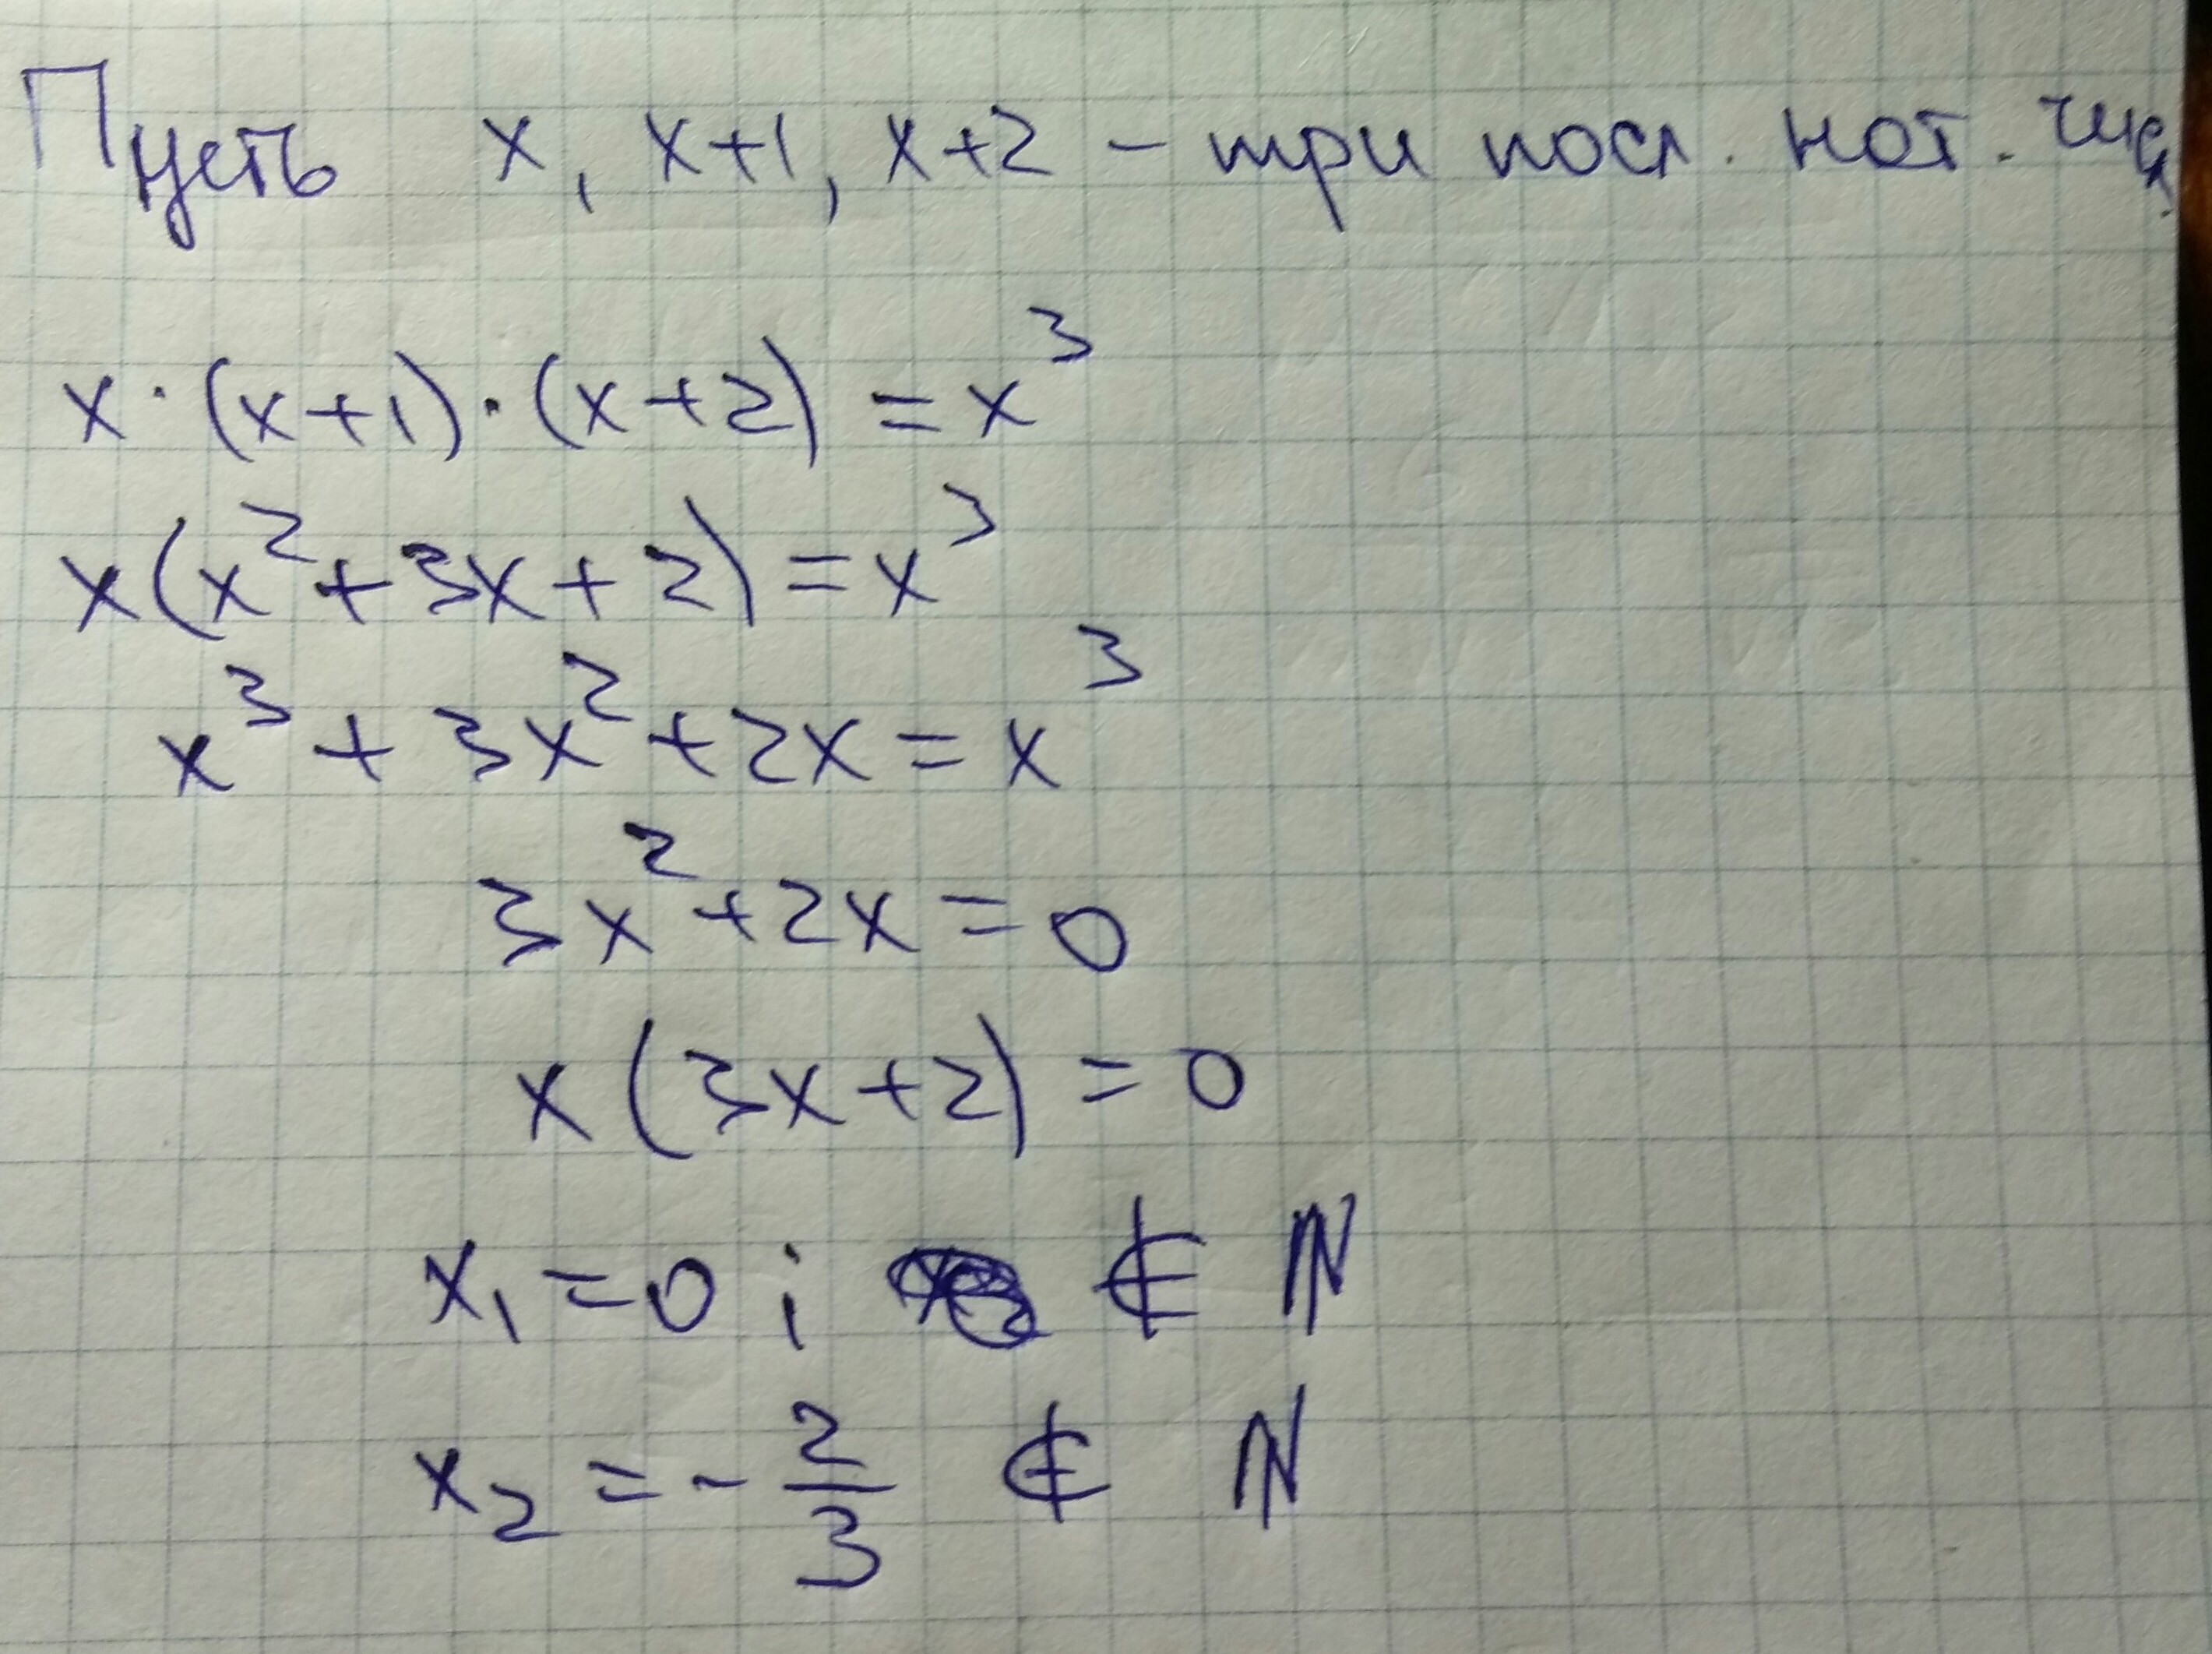 Пусть x, x+1, x+2 - три посл. нат. числа
x·(x+1)·(x+2) = x³
x(x²+3x+2) = x³
x³ + 3x² + 2x = x³
3x² + 2x = 0
x(3x+2) = 0
x₁ = 0 ; ∉ ℕ
x₂ = - 2/3 ∉ ℕ